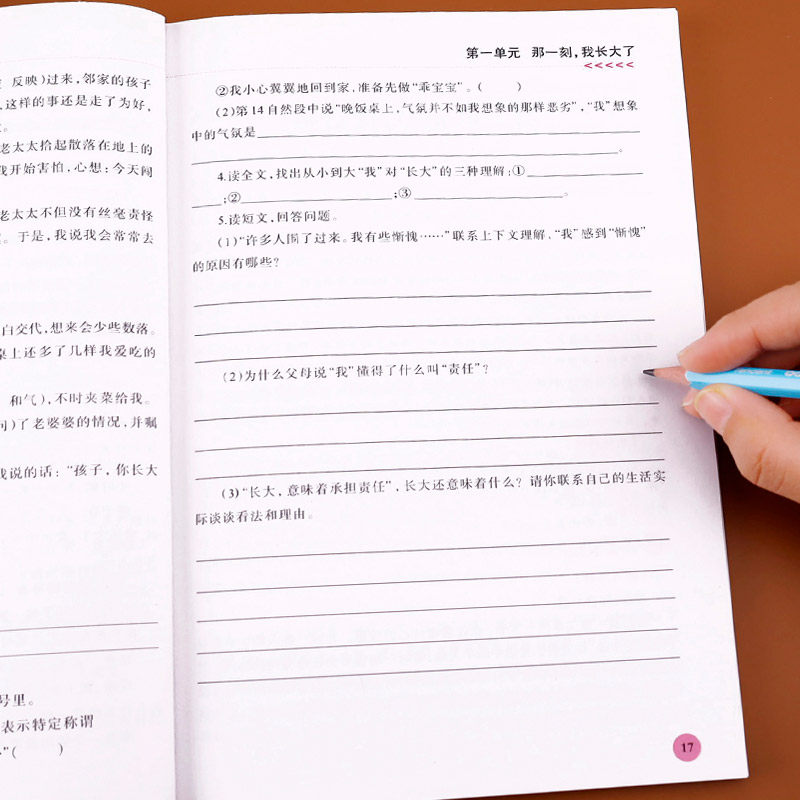 反映)过来,邻家的孩子
,这样的事还是走了为好,
。
老太太拾起散落在地上的
我开始害怕,心想:今天闯
老太太不但没有丝毫责怪
。于是,我说我会常常去
白交代,想来会少些数落。
桌上还多了几样我爱吃的
和气),不时夹菜给我。
问)了老婆婆的情况,并嘱
我说的话:“孩子,你长大
号里。
表示特定称谓
”( )
第一单元 那一刻,我长大了
<<<<<
②我小心翼翼地回到家,准备先做“乖宝宝”。( )
(2)第14自然段中说“晚饭桌上,气氛并不如我想象的那样恶劣”,“我”想象
中的气氛是
。
4.读全文,找出从小到大“我”对“长大”的三种理解:①
;② ;③ 。
5.读短文,回答问题。
(1)“许多人围了过来。我有些惭愧……”联系上下文理解、“我”感到“惭愧”
的原因有哪些?
(2)为什么父母说“我”懂得了什么叫“责任”?
(3)“长大,意味着承担责任”,长大还意味着什么?请你联系自己的生活实
际谈谈看法和理由。
17